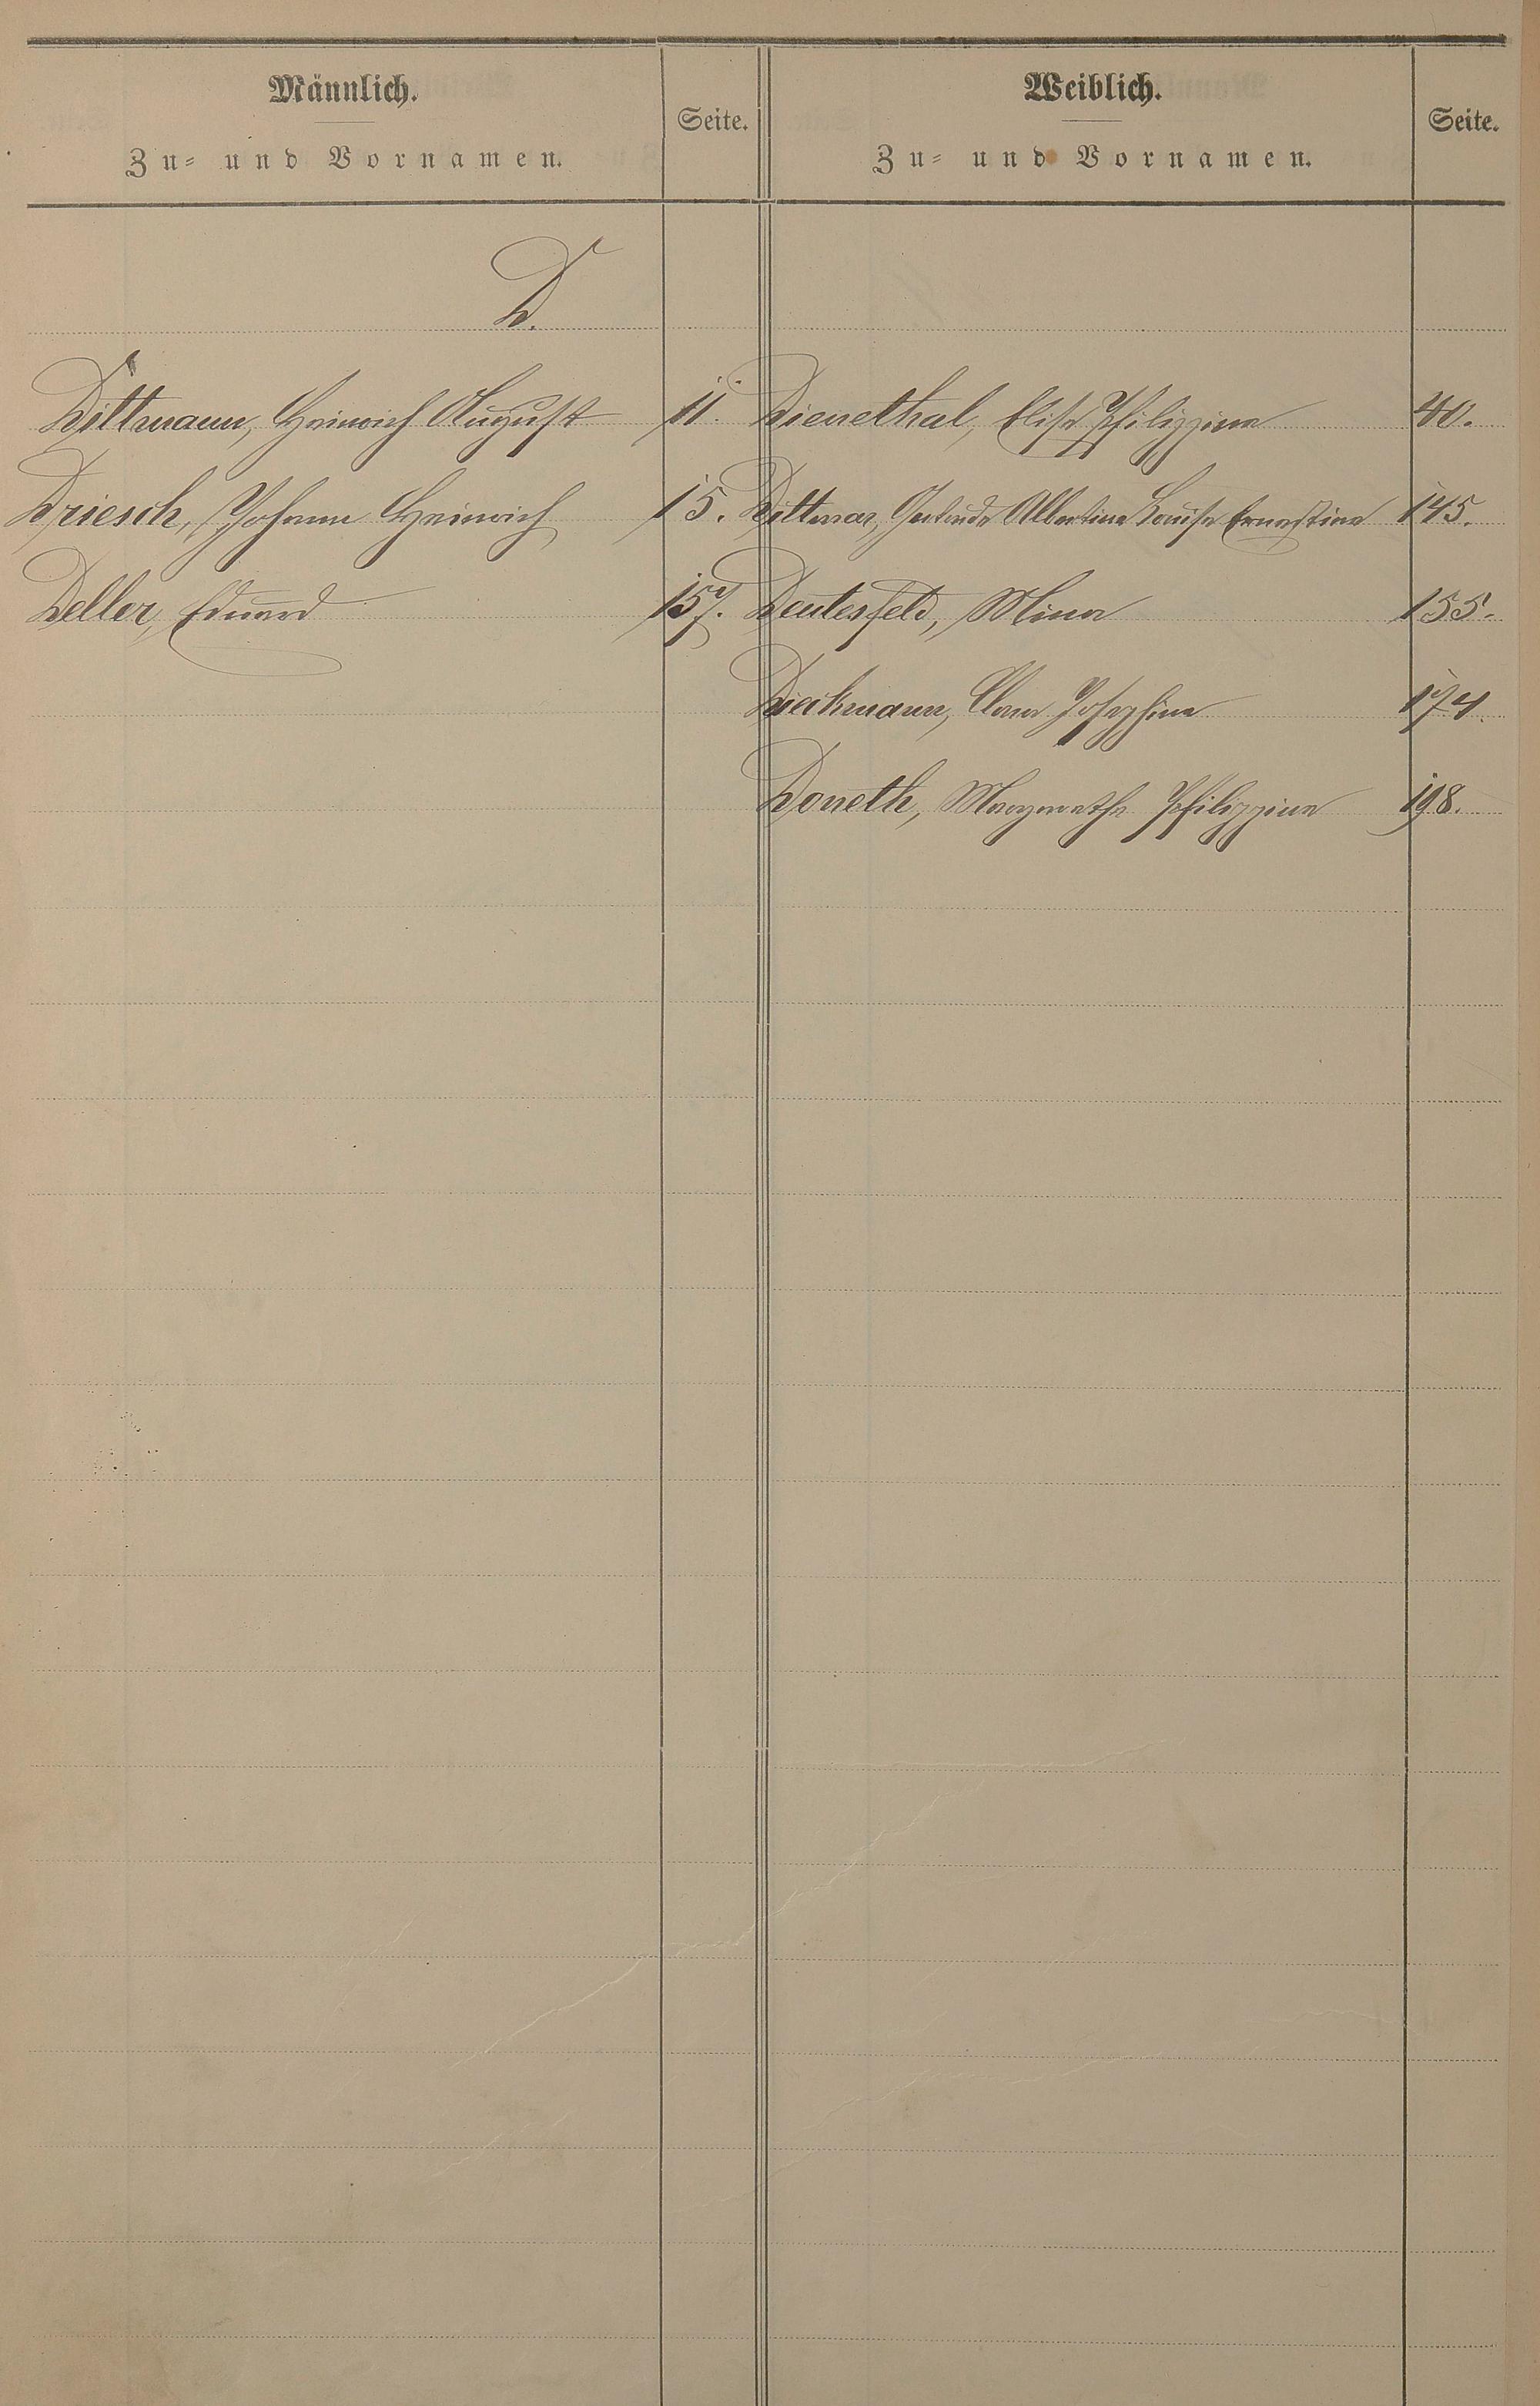 Männlich.
Zu- und Vornamen.
Seite.
Weiblich.
Zu- und Vornamen.
Seite.
D.
Dittmann, Heinrich August 11.
Dienethal, Elise Philippine 40.
Driesch, Johann Heinrich 15.
Dittmar, Gertrude Albertine Louise Ernestine 145.
Deller, Eduard 157.
Deutesfeld, Mina 155.
Dieckmann, Clara Josephine 174.
Doneth, Margarethe Philippine 198.